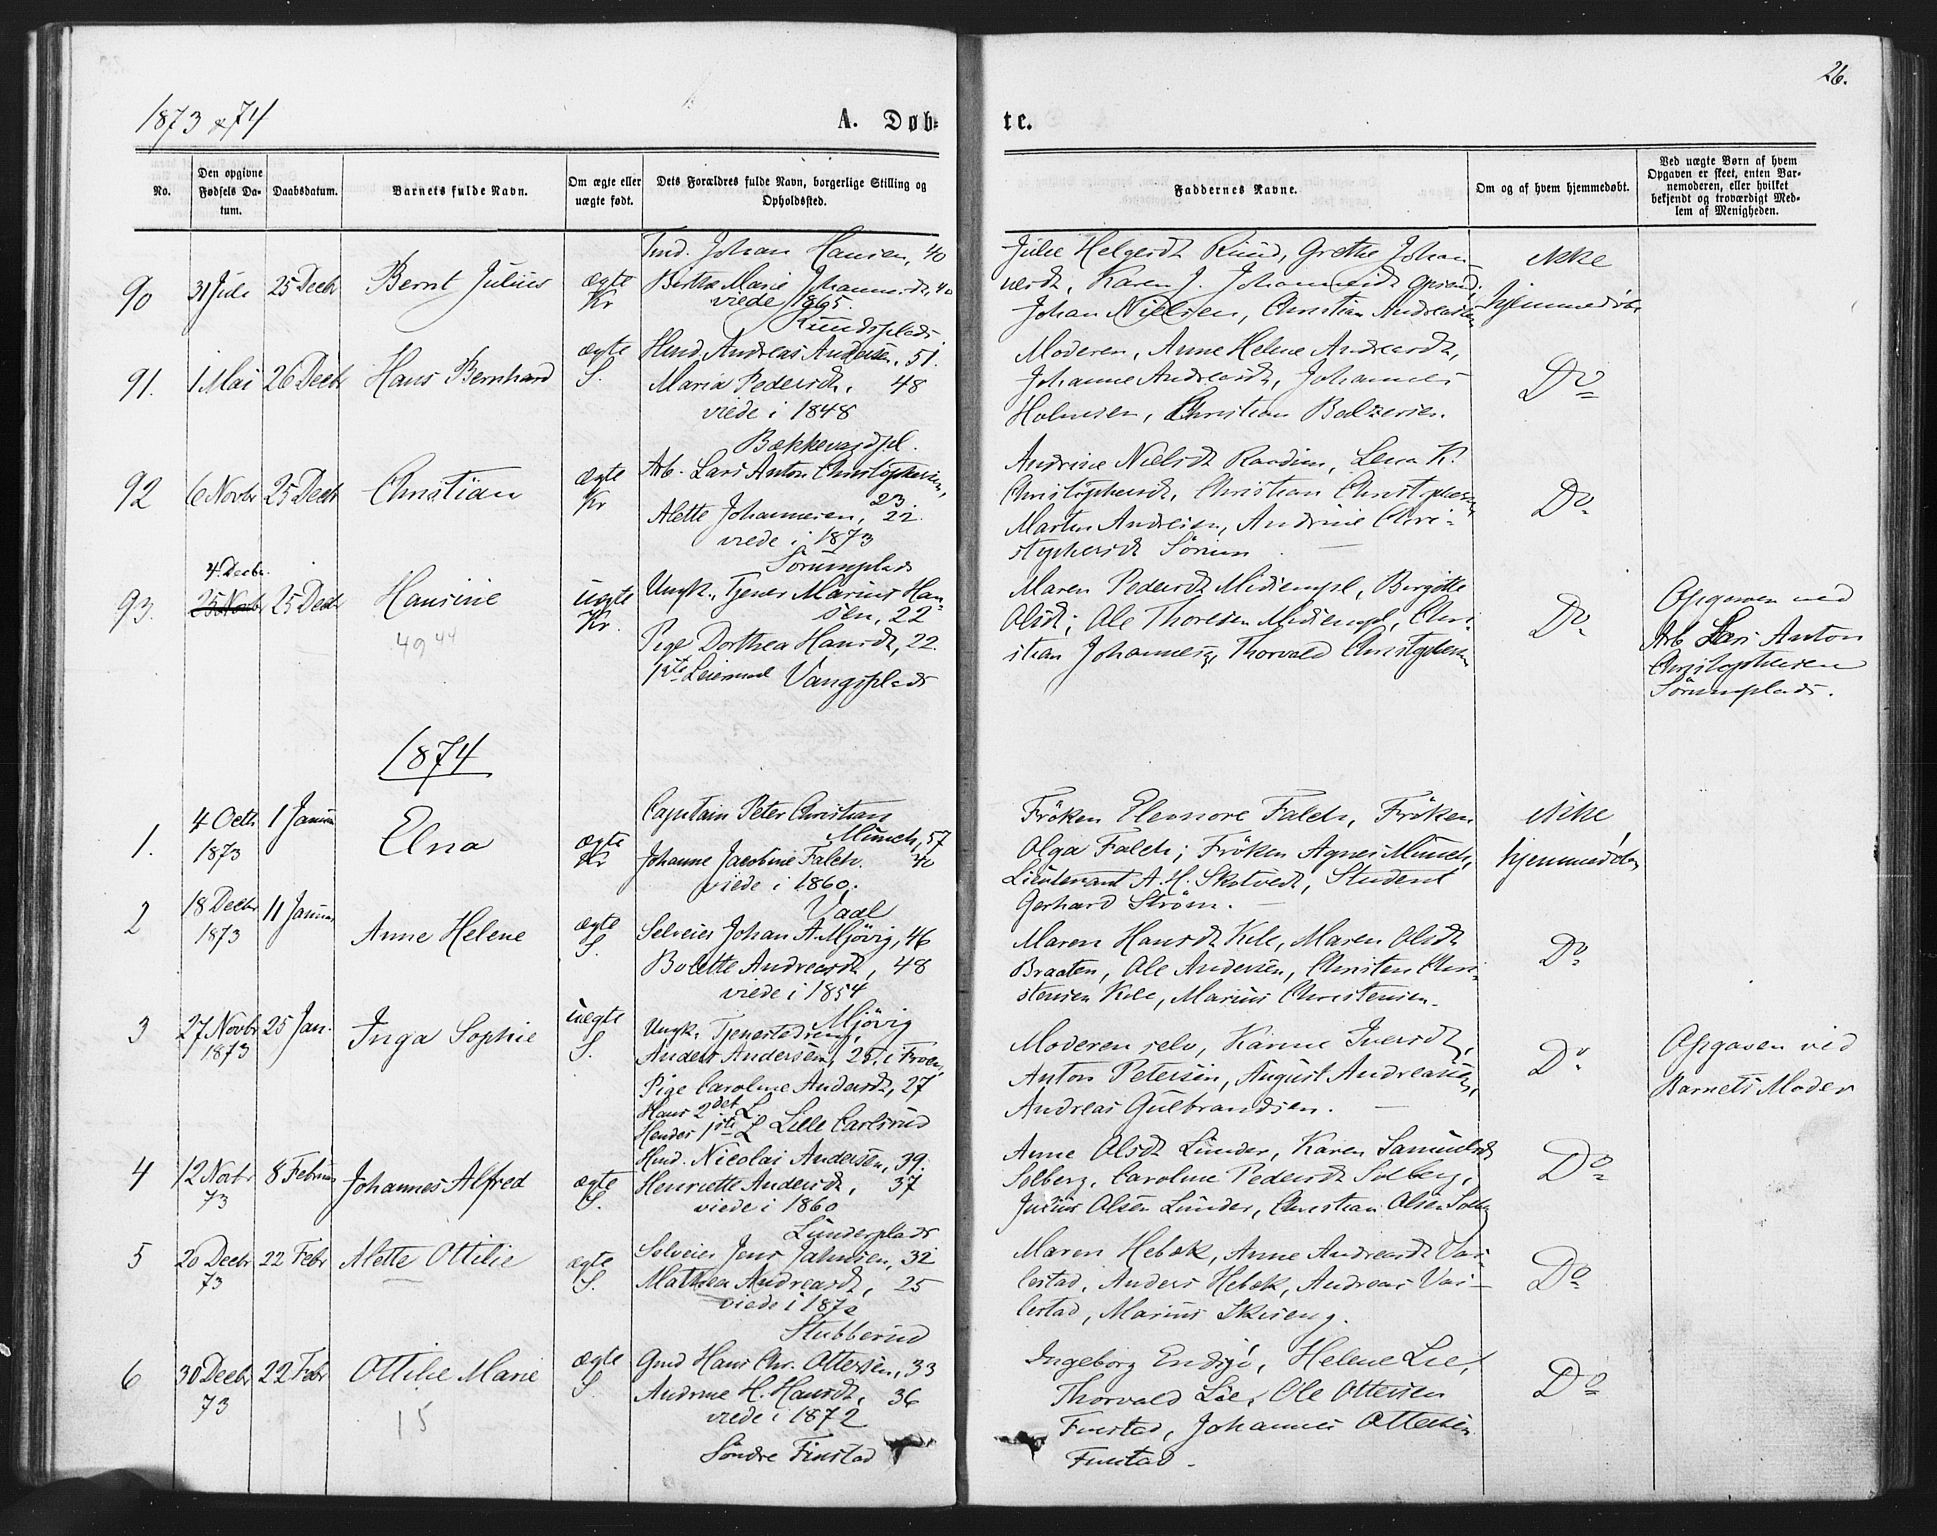 26.
1873 & 74
A. Døb-
te.
No.
Den opgivne
Fødsels Da-
tum.
Daabsdatum.
Barnets fulde Navn.
Om ægte eller
uægte født.
Dets Forældres fulde Navn, borgerlige Stilling og
Opholdssted.
Faddernes Navne.
Om og af hvem hjemmedøbt.
Ved uægte Børn af hvem
Opgaven er skeet, enten Bar-
nemoderen, eller hvilket
bekjendt og troværdigt Med-
lem af Menigheden.
90
31 Juli
25 Decbr
Bernt Julius
ægte
Kr
Johan Hansen, 40
Berthe Marie Johannesdt, 40
viede 1865
Ruudsplads
Julie Helgesdt Ruud, Grethe Johan-
nesdt, Karen J. Johannesdt
Johan Nielsen, Christian Andreasen
ikke
hjemmedøbt
91.
1 Mai
26 Decbr
Hans Bernhard
ægte
S.
Husd. Andreas Andersen, 51.
Maria Pedersdt, 48
viede i 1848
Moderen, Anne Helene Andreasdt,
Johanne Andreasdt, Johannes
Holmsen, Christian Balzersen.
Do
92
6 Novbr
25 Decbr
Christian
ægte
Kr
Arb. Lars Anton Christophersen,
23
Alette Johannesen, 22.
viede i 1873
Sörumplads
Andrine Nielsdt Raadim, Lena K.
Christophersdt, Christian Christophersen
Martin Andresen, Andrine Chri-
stophersdt Sörum.
Do
93.
4. Decbr.
25 Novbr
25 Decbr
Hansine
49 44
uægte
Kr.
Ungk. Tjener Marius Han-
sen, 22
Pige Dorthea Hansdt, 22.
1ste Leiermaal Vangsplads
Maren Pedersdt Midienspl, Birgitte
Olsdt; Ole Thoresen Midienspl, Chri-
stian Johannesen, Thorvald Christophersen
Do
Opgaven ved
Arb Lars Anton
Christophersen
Sörumplads.
1874
1.
4 Octb
1873
1 Januar
Elna
ægte
Kr
Capitain Peter Christian
Munch, 57
Johanne Jacobine Falch. 40
viede i 1860.
Vaal
Fröken Eleonore Falch, Fröken
Olga Falch; Fröken Agnes Munch,
Lieutenant A. H. Skotvedt, Student
Gerhard Ström.
ikke
hjemmedøbt
2
18 Decbr
1873
11 Januar
Anne Helene
ægte
S.
Selveier Johan A. Mjövig, 46
Bolette Andreasdt, 48
viede i 1854
Mjövig
Maren Hansdt Kile, Maren Olsdt
Braaten, Ole Andersen, Christen Chri-
stensen Kile, Marius Christensen.
Do
3
27 Novbr
1873
25 Jan.
Inga Sophie
uægte
S.
Ungk. Tjenestedreng,
Anders Andersen, 25, i Froen,
Pige Caroline Andersdt, 27
Hans 2det L
Hendes 1ste L Lille Carlsrud
Moderen selv, Karine Iversdt,
Anton Petersen, August Andreasen,
Andreas Gulbrandsen.
Do
Opgaven ved
Barnets Moder
4
12 Novbr
73
8 Februar
Johannes Alfred
ægte
S.
Husd. Nicolai Andersen, 39.
Henriette Andersdt, 37
viede i 1860
Lunderplads
Anne Olsdt Lunder, Karen Samuelsdt
Solberg, Caroline Pedersdt Solberg,
Julius Olsen Lunder, Christian Olsen Solberg
Do
5
20 Decbr
73
22 Febr
Alette Ottilie
ægte
S.
Selveier Jens Jahnsen, 32
Mathea Andreasdt, 25
viede i 1872
Stubberud
Maren Hebæk, Anne Andreasdt Var-
lestad, Anders Hebæk, Andreas Var-
lestad, Marius Skiseng.
Do
6
30 Decbr
73
22 Febr
Ottilie Marie
15
ægte
S.
Gmd Hans Chr. Ottersen, 33
Andrine H. Hansdt, 36
viede i 1872
Söndre Finstad
Ingeborg Endsjö, Helene Lie,
Thorvald Lie, Ole Ottersen
Finstad, Johannes Ottersen
Finstad.
Do